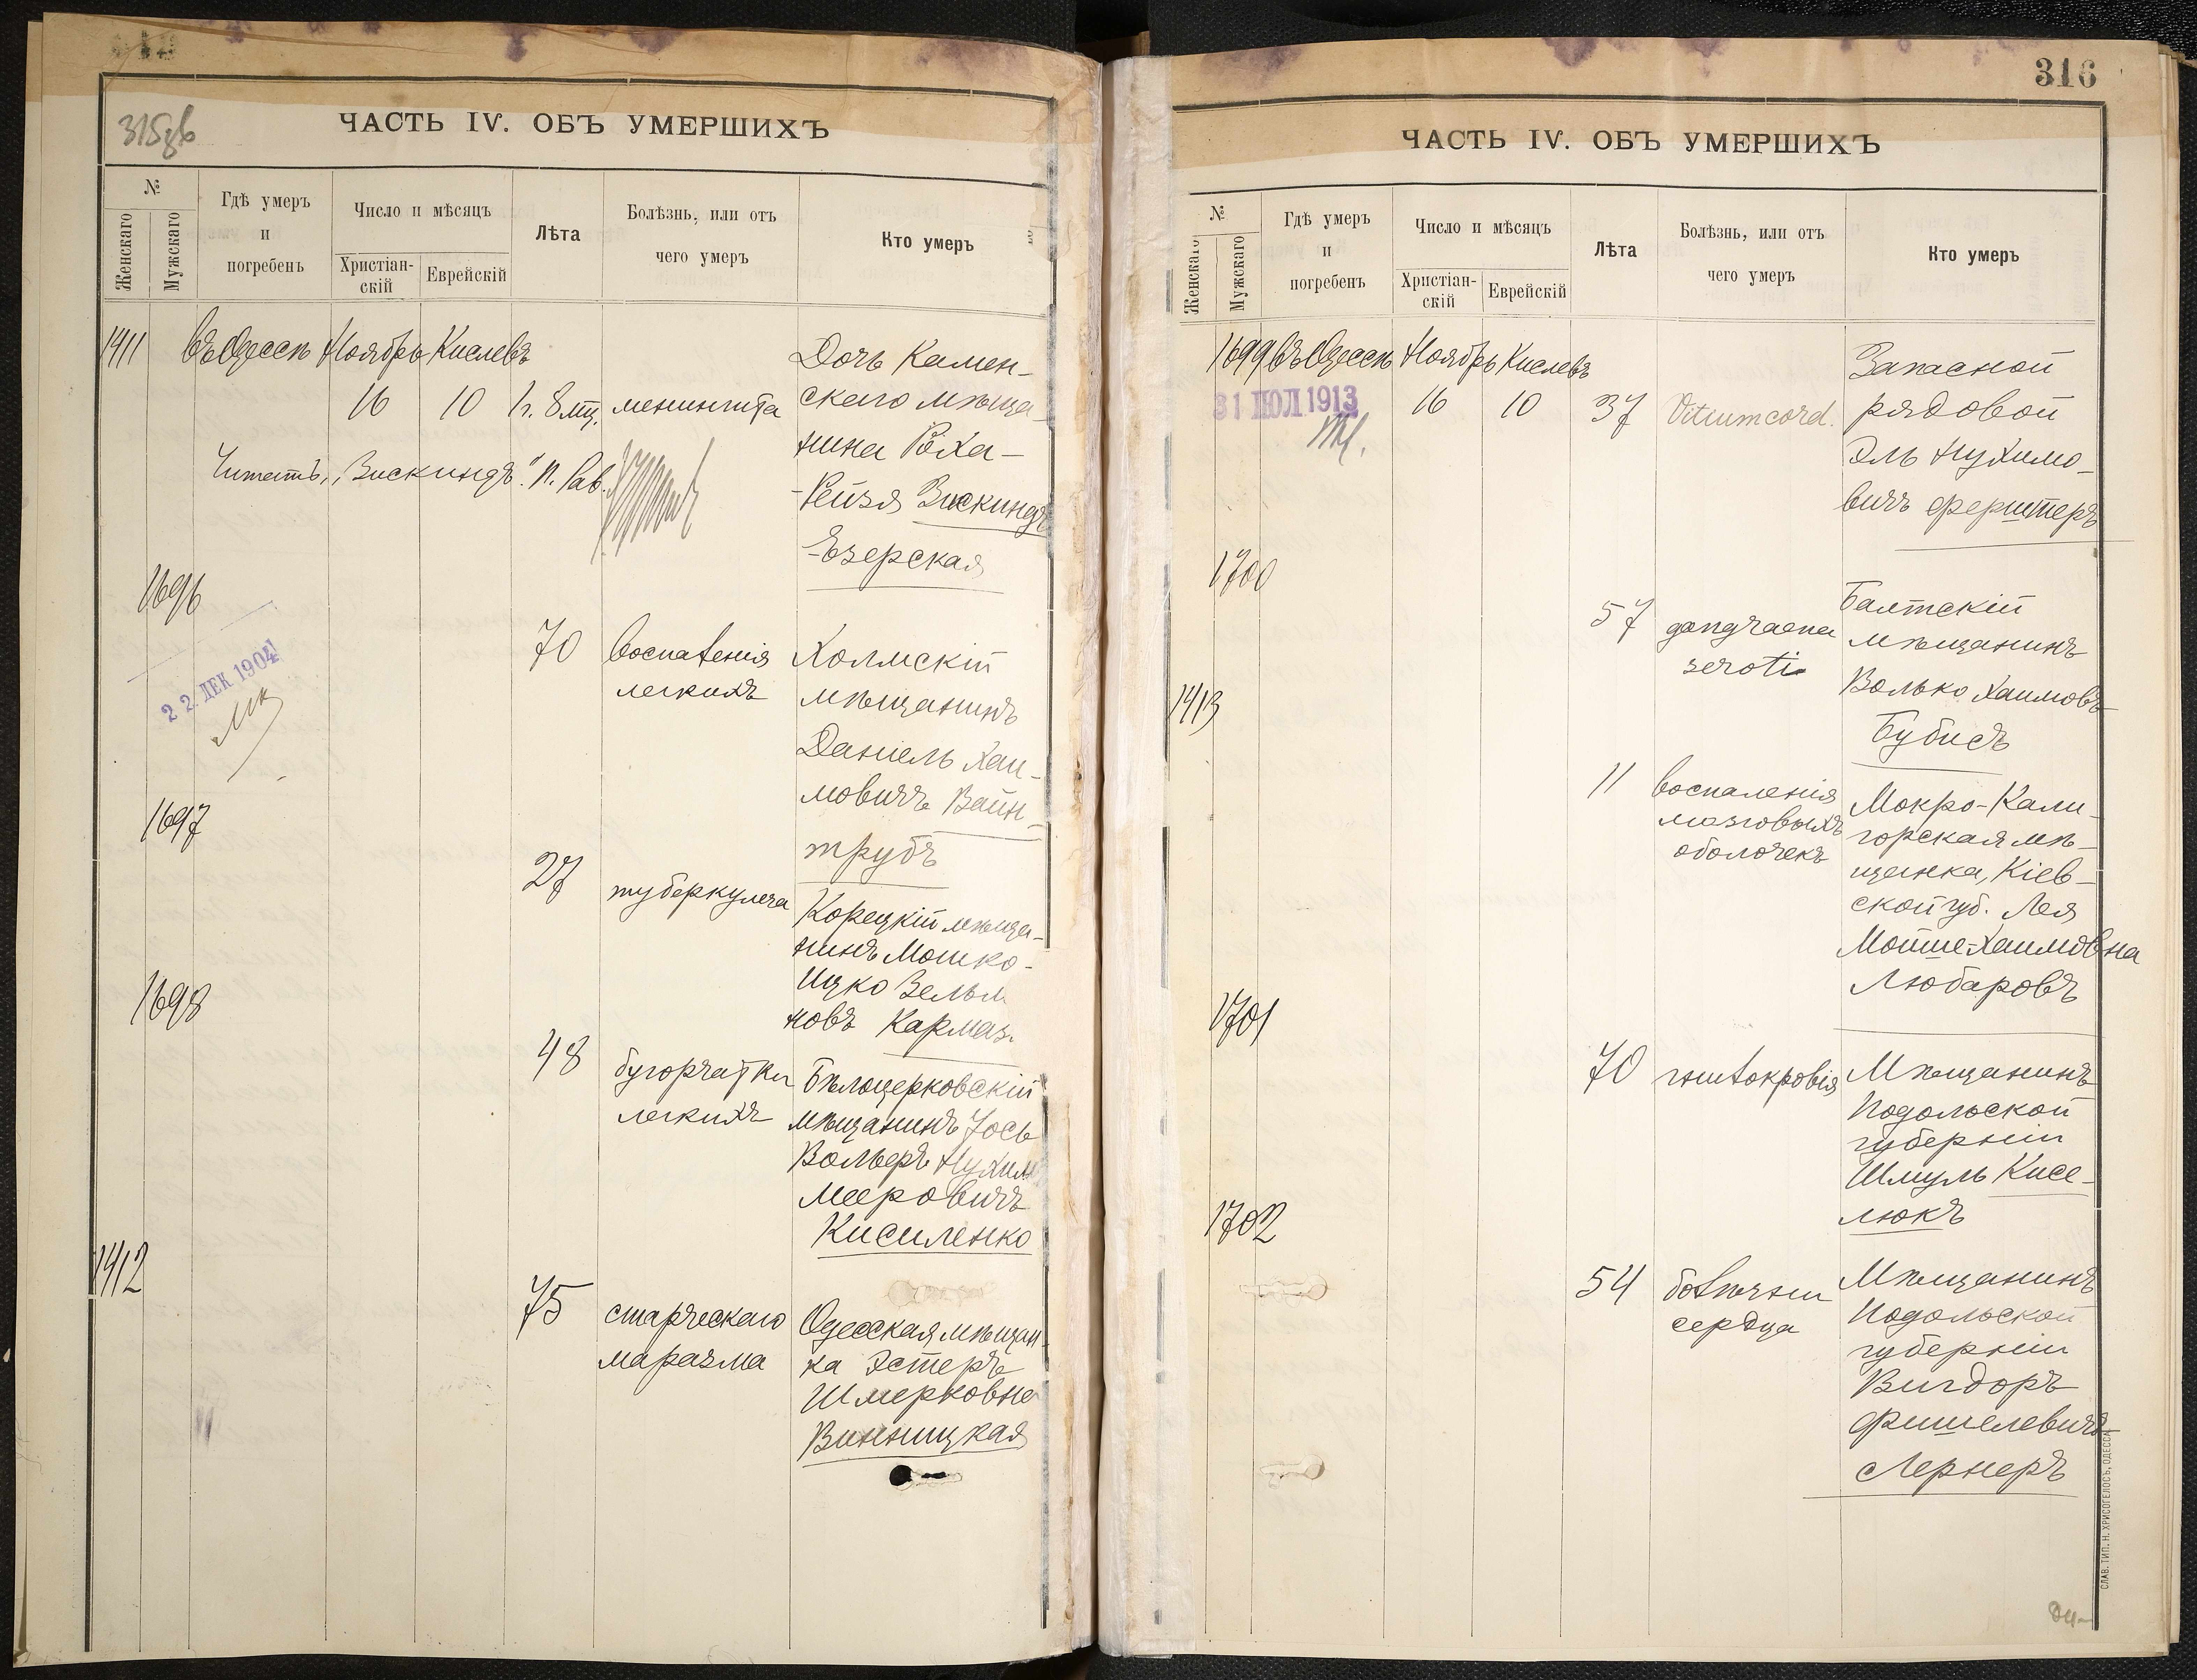 315 об
ЧАСТЬ IV. ОБЪ УМЕРШИХЪ
№
Женскаго
Мужскаго
Гдѣ умеръ
и
погребенъ
Число и мѣсяцъ
Христіан-
скій
Еврейскій
Лѣта
Болѣзнь, или отъ
чего умеръ
Кто умеръ
1411 въ Одессѣ Ноябрь Кислевъ
16 10 1 г. 8 мѣц. менингита
Дочь Камен-
скаго мѣща-
нина Роха-
-Рейзя Зискиндъ
-Езерская
Читать „Зискиндъ". П. Рав.
1696
22. ДЕК 1904
70 воспаленія
легкихъ
Холмскій
мѣщанинъ
Даніель Хаи-
мовичъ Вайн-
трубъ
1697
27 туберкулеза
Корецкій мѣща-
нинъ Мошко-
Ицко Зельм
новъ Кармаз.
1698
48 бугорчатки
легкихъ
Бѣлоцерковскій
мѣщанинъ Іось
Вольверъ Нухим
Мееровичъ
Кисиленко
1412
75 старческаго
маразма
Одесская мѣщан-
ка Эстеръ
Шмерковна
Винницкая
316
ЧАСТЬ IV. ОБЪ УМЕРШИХЪ
№
Женскаго
Мужскаго
Гдѣ умеръ
и
погребенъ
Число и мѣсяцъ
Христіан-
скій
Еврейскій
Лѣта
Болѣзнь, или отъ
чего умеръ
Кто умеръ
1699 въ Одессѣ Ноябрь Кислевъ
31 ІЮЛ 1913
16 10 37 Vitium cord.
Запасной
рядовой
Эль Нухимо-
вичъ Ферштеръ
1700
57 gangraena
seroti
Балтскій
мѣщанинъ
Волько Хаимовъ
Бубисъ
1413
11 воспаленія
мозговыхъ
оболочекъ
Мокро-Кали-
горская мѣ-
щанка, Кіев-
ской губ. Лея
Мойше-Хаимовна
Любаровъ
1701
70 гнилокровія
Мѣщанинъ
Подольской
губерніи
Шмуль Кисе-
люкъ
1702
54 болѣзни
сердца
Мѣщанинъ
Подольской
губерніи
Вигдоръ
Фишелевичъ
Лернеръ
СЛАВ. ТИП. Н. ХРИСОГЕЛОСЪ, ОДЕССА